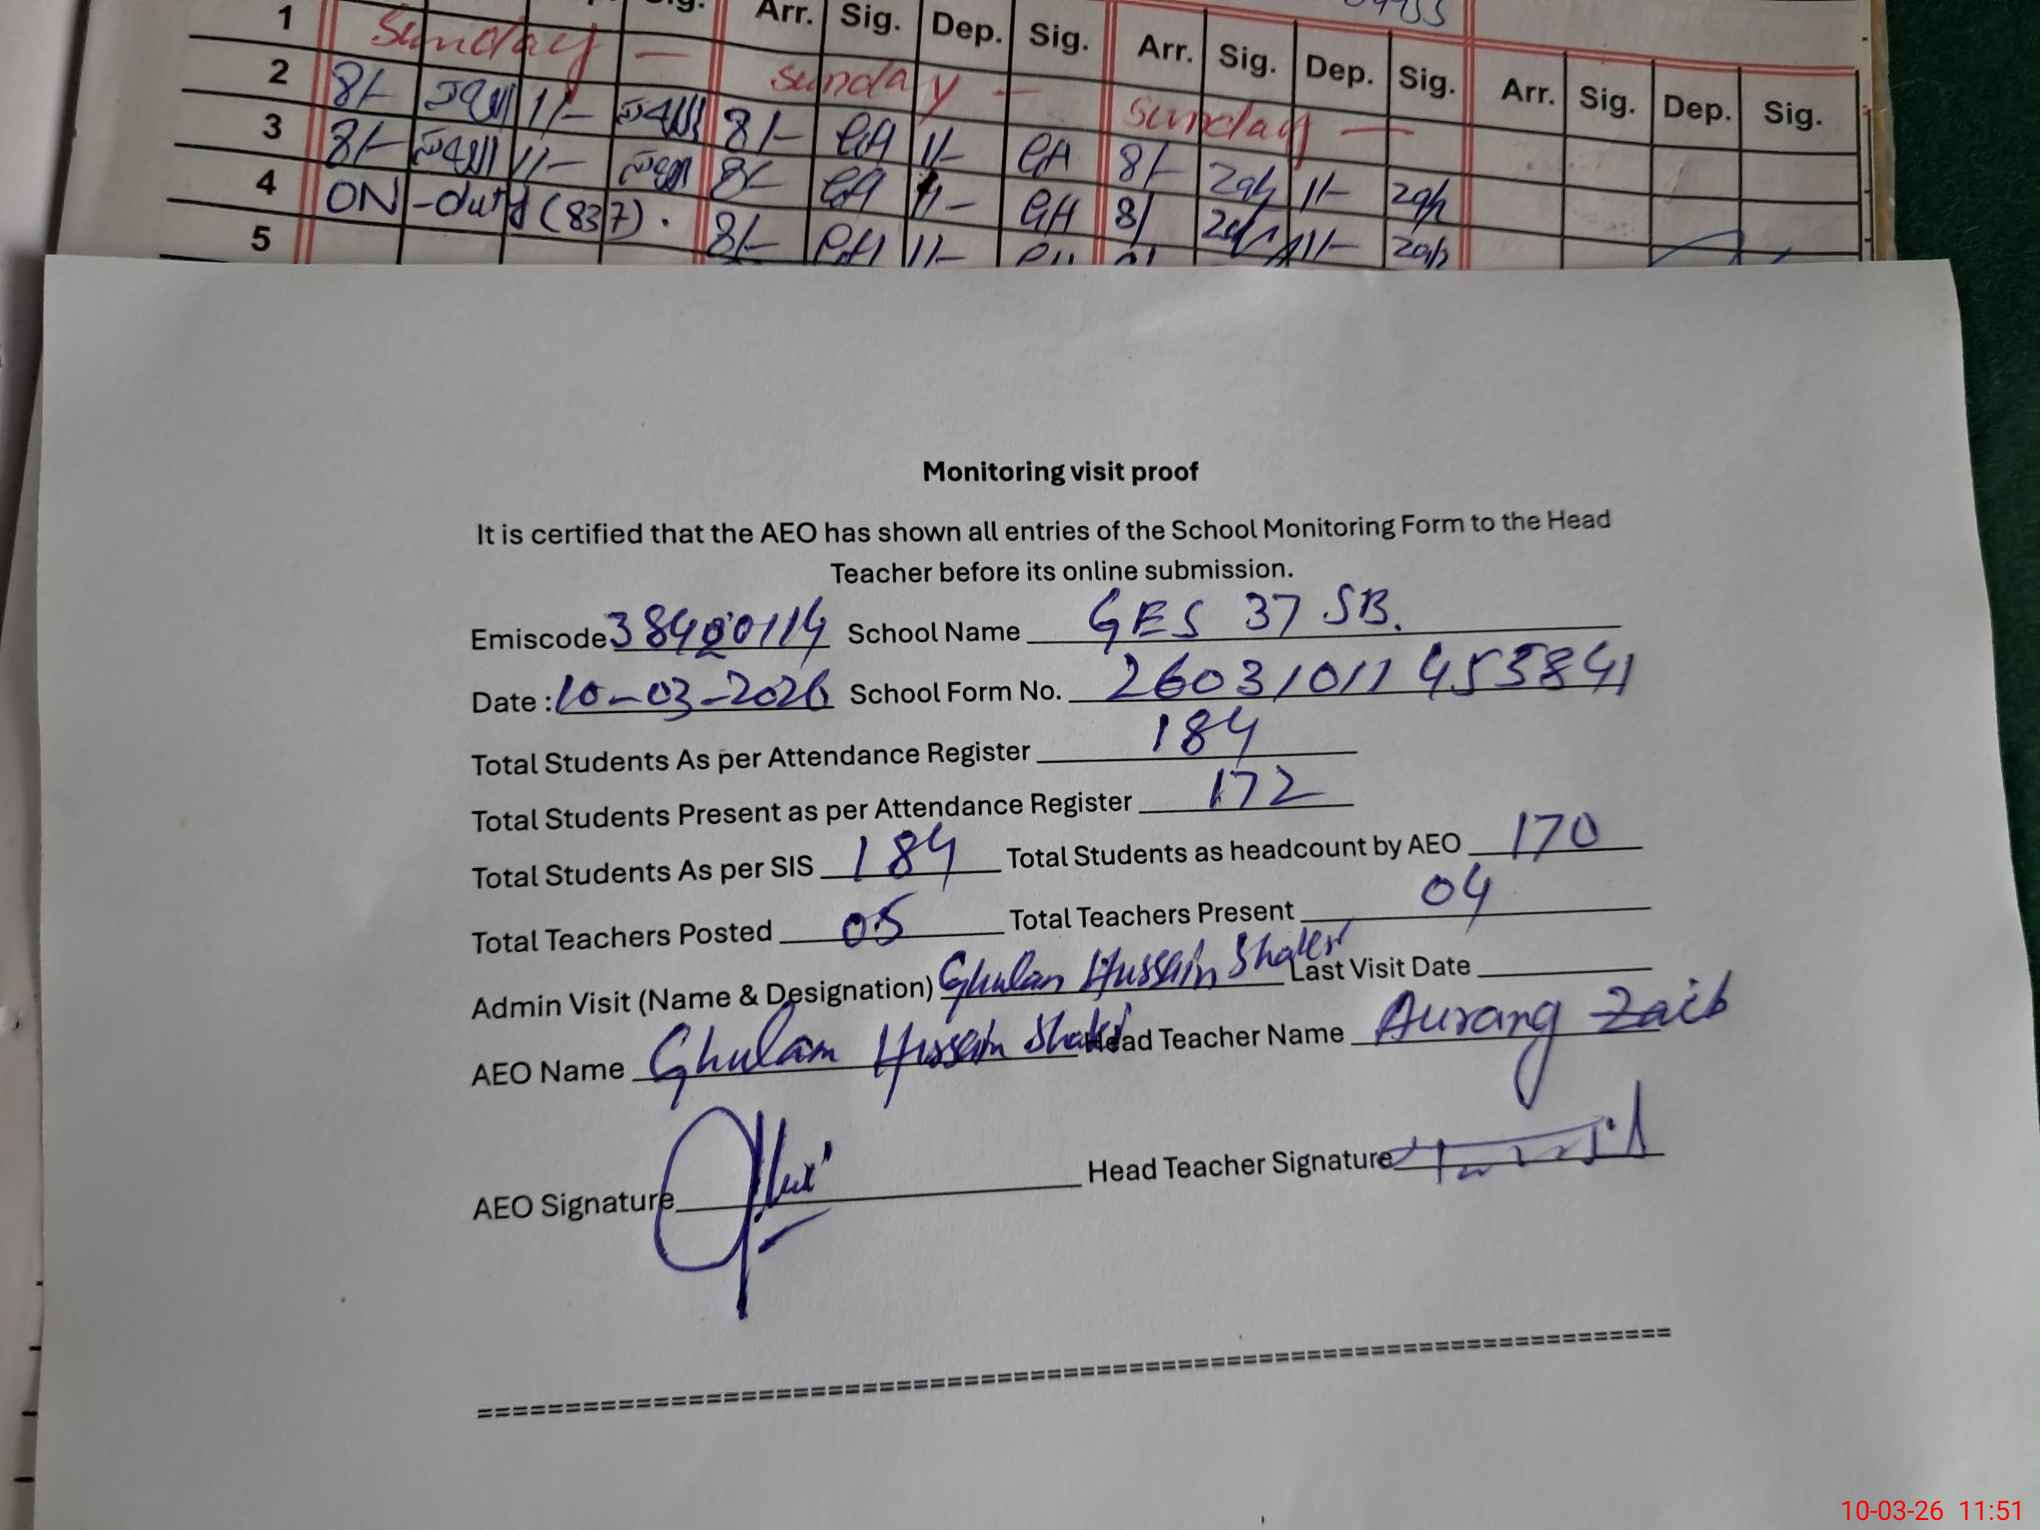 Arr. Sig. Dep. Sig. Arr. Sig. Dep. Sig. Arr. Sig. Dep. Sig.
1 Sunday — sunday — sunday —
2 8/- 11/- 8/- GA 11/- GA 8/- zah 11/- zah
3 8/- 11/- 8/- GA 11/- GA 8/ 11/- zah
4 ON-duty (837). 8/- 11/-
5
Monitoring visit proof
It is certified that the AEO has shown all entries of the School Monitoring Form to the Head
Teacher before its online submission.
Emiscode 38420114 School Name GES 37 SB.
Date : 10-03-2026 School Form No. 26031011455841
Total Students As per Attendance Register 184
Total Students Present as per Attendance Register 172
Total Students As per SIS 184 Total Students as headcount by AEO 170
Total Teachers Posted 05 Total Teachers Present 04
Admin Visit (Name & Designation) Ghulam Hussain Shaker Last Visit Date
AEO Name Ghulam Hussain Shaker Head Teacher Name Aurang Zaib
AEO Signature Head Teacher Signature
================================================================
10-03-26 11:51